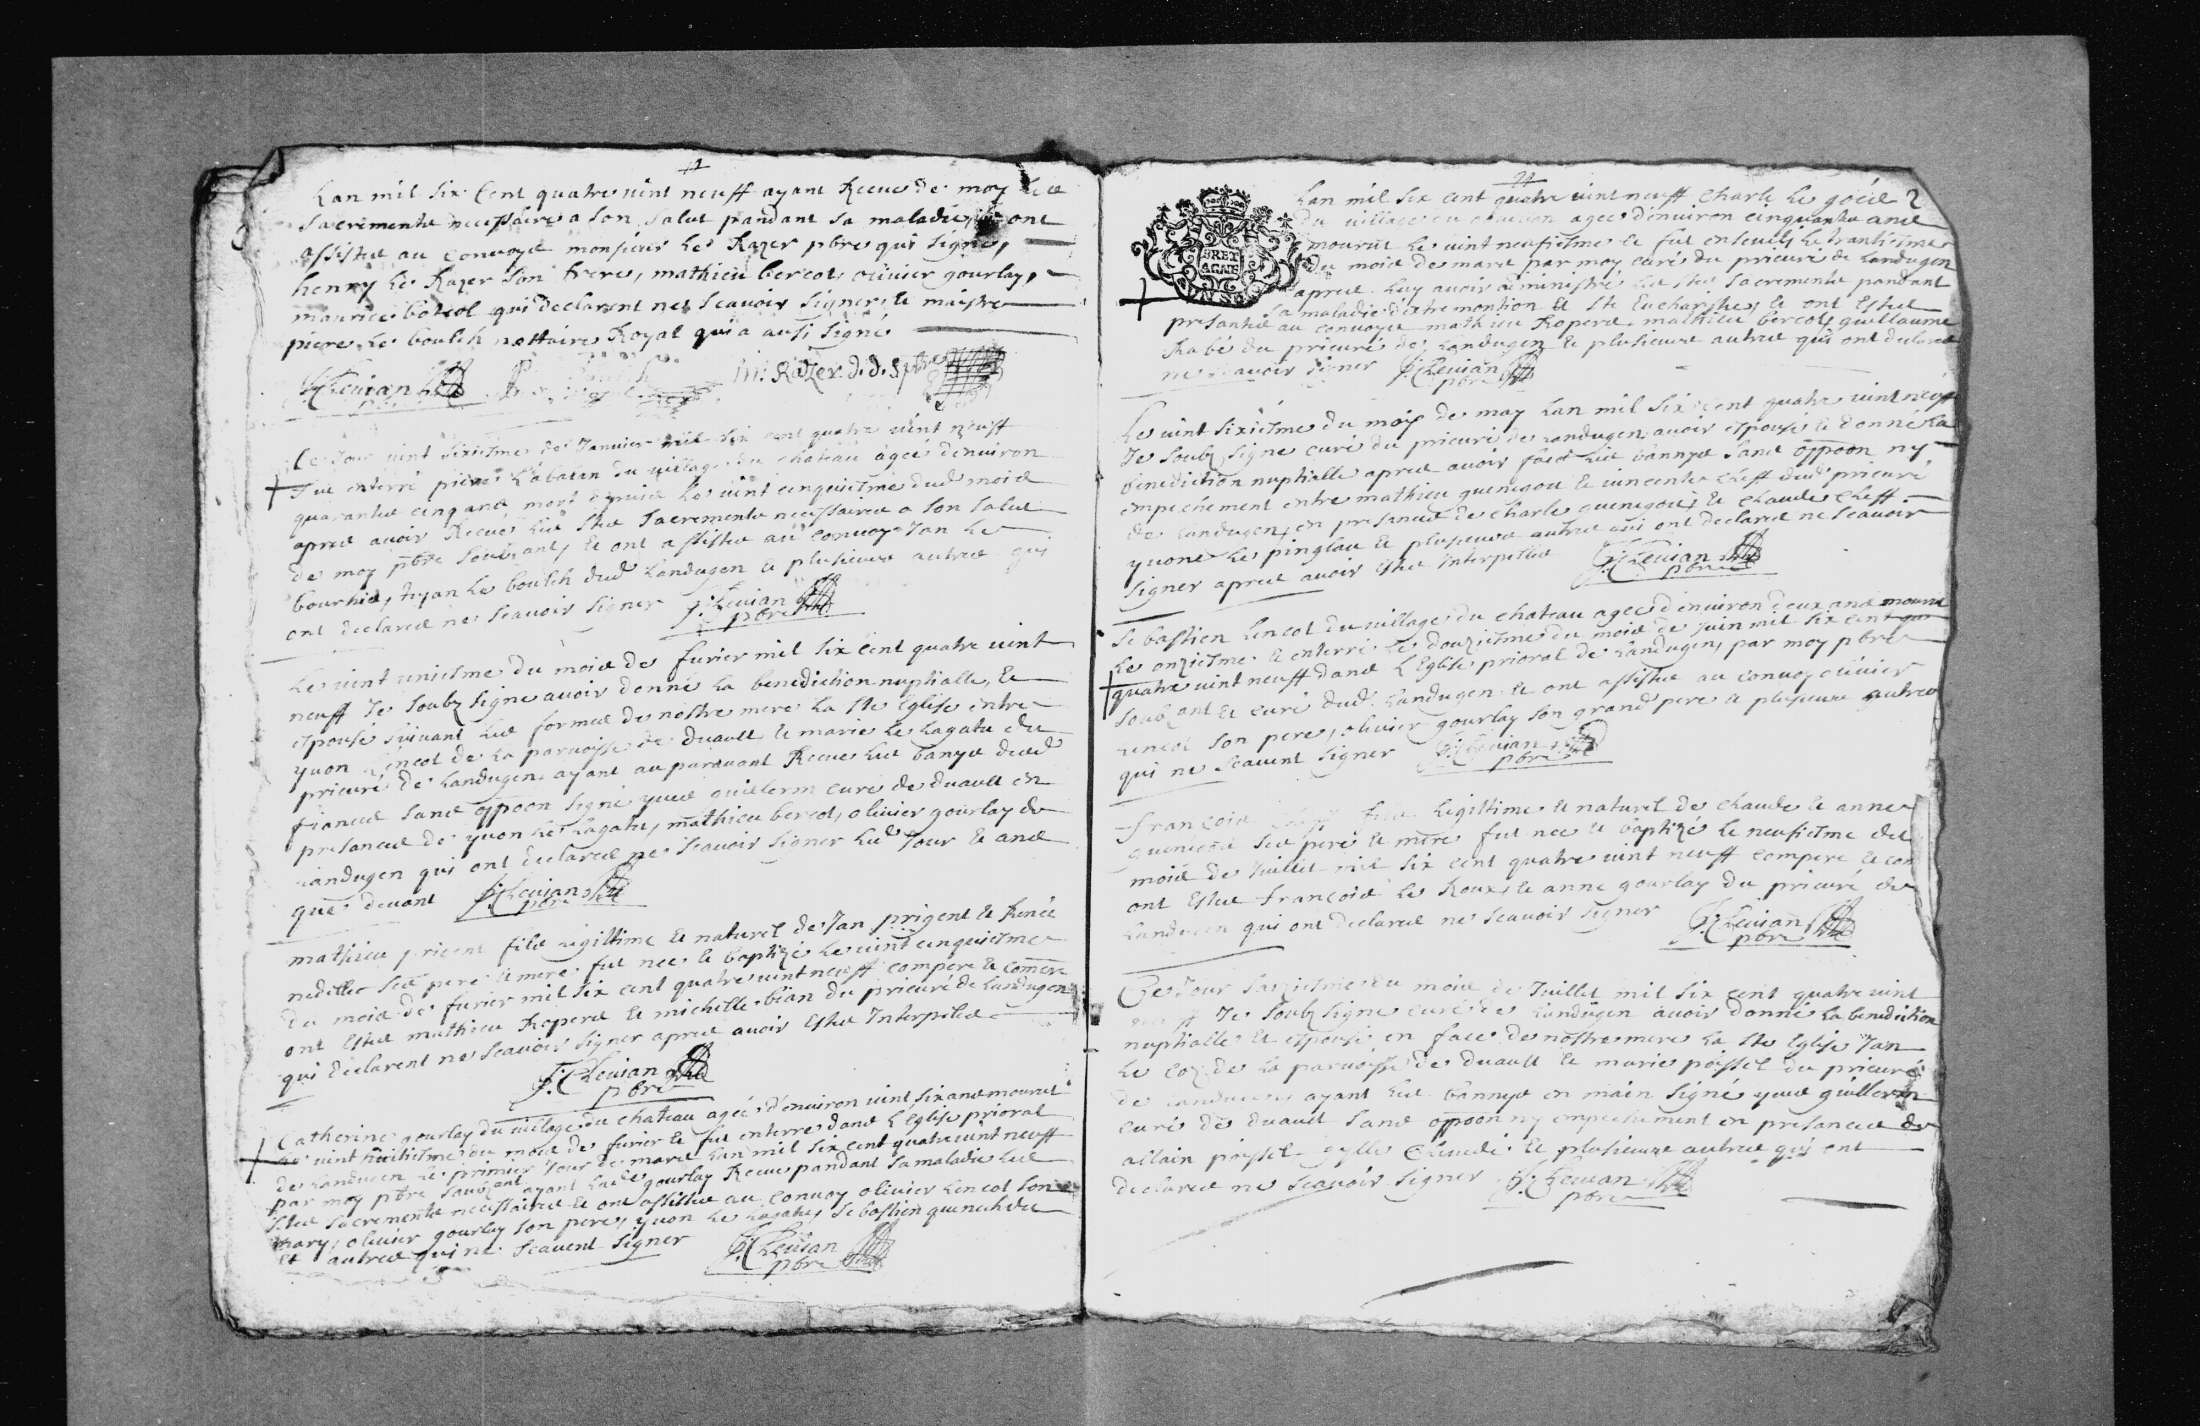 Lan mil six Cent quatre vint neuff ayant Receu de moy Les
Sacrements necessaires a Son Salut pandant Sa maladie, ont
assistes au Convoye monsieur Le Razer pbre qui Signe,
henry Le Razer Son frere, mathieu bercot, olivier gourlay,
maurice botcol qui declarent ne Scavoir Signer, Et maistre
piere Le boulch nottaire Royal qui a aussi Signé
J: Levian
m: Razer. d. d. S pbre
Ce Jour vint Sixiesme de Janvier mil Six cent quatre vint neuff
Fut enterré piere Labatan du village du chateau agée d'environ
quarante cinq ans mort depuis Le vint cinquiesme dud moid
apres avoir Receu Les Stes Sacrements necessaires a Son Salut
de moy pbre Soubzant, Et ont assistes au Convoy Jan Le
bourhis, Le boulch dud Landugen et plusieurs autres qui
ont declares ne Scavoir Signer J: Levian
pbre
Le vint uniesme du moid de fuvrier mil Six Cent quatre vint
neuff Je Soubz Signe avoir donné La benediction nuptialle, Et
espouse Suivant Les formes de nostre mere La Ste Eglise entre
yvon Lencot de La parroisse de duault Et marie Le Lagatu du
prieuré de Landugen ayant auparavant Receu Les banyes dud
fiances Sans oppoon Signé yves guillerm curé de duault En
presances de yvon Le Lagatu, mathieu bercot, olivier gourlay de
Landugen qui ont declares ne Scavoir Signer Lesd Jour Et ans
que devant J: Levian
pbre
mathieu prigent fils Legittime Et naturel de Jan prigent Et Renée
nedellec Ses pere Et mere fut nee Et baptizé Le vint cinquiesme
du moid de fuvrier mil Six cent quatre vint neuff compere Et comere
ont Estes mathieu Roperd Et michelle bian du prieuré de Landugen
qui declarent ne Scavoir Signer apres avoir Estes Interpelles
J: Levian
pbre
Catherine gourlay du village du chateau agée d'environ vint Six ans mourut
Le vint huitiesme du moid de fuvrier Et fut enterre dans L'Eglise prioral
de Landugen Le primier Jour de mars Lan mil Six cent quatre vint neuff
par moy pbre Soubzant ayant Lad gourlay Receu pandant Sa maladie Les
Stes Sacrements necessaires Et ont assistes au Convoy olivier Lencot Son
mary, olivier gourlay Son pere, yvon Le Lagatu, Sebastien quenechdu
Et autres qui ne Scavent Signer J: Levian
pbre
2
BRET
AGNE
Lan mil Six cent quatre vint neuff Charle Le goëd
du village du agee d'environ cinquante ans
mourut Le vint neufiesme Et fut enseveli Le trantiesme
du moid de mars par moy curé du prieuré de Landugen
apres Luy avoir administré Les Stes Sacrements pandant
Sa maladie d'extremontion Et Ste Eucharistie, Et ont Estes
presants au convoye mathieu Roperd, mathieu bercot, guillaume
Rabé du prieuré de Landugen Et plusieurs autres qui ont declares
ne Scavoir Signer J: Levian
pbre
Le vint Sixiesme du moy de may Lan mil Six Cent quatre vint neuff
Je Soubz Signe curé du prieuré de Landugen avoir espouse Et donné La
benediction nuptialle apres avoir faict Les bannyes Sans oppoon ny
empechement entre mathieu quenegou Et vincente Cleff dud prieuré
de Landugen, en presances de charle quenegou, Et claude Cleff
yvone Le pinglau Et plusieurs autres qui ont declares ne Scavoir
Signer apres avoir Estes Interpelles J: Levian
pbre
Sebastien Lencot du village du chateau agee d'environ deux ans mourut
Le onziesme Et enterré Le douziesme du moid de Juin mil Six cent
quatre vint neuff dans L'Eglise prioral de Landugen, par moy pbre
Soubzant Et curé dud. Landugen Et ont assistes au convoy olivier
Lencot Son pere, olivier gourlay Son grand pere Et plusieurs autres
qui ne Scavent Signer J: Levian
pbre
Francoid fils Legittime Et naturel de claude Et anne
Ses pere Et mere fut nee Et baptizé Le neufiesme de
moid de Juillet mil Six cent quatre vint neuff compere Et com
ont Estes Francoid Le Roux Et anne gourlay du prieuré de
Landugen qui ont declares ne Scavoir Signer J: Levian
pbre
Ce Jour du moid de Juillet mil Six cent quatre vint
neuff Je Soubz Signe curé de Landugen avoir donné La benediction
nuptialle Et espouse en face de nostre mere La Ste Eglise Jan
Le coz de La parroisse de duault Et marie poissel du prieuré
de Landugen ayant Les bannyes en main Signé yves guillerm
curé de duault Sans oppoon ny empechement en presances de
allain poissel gylle Et plusieurs autres qui ont
declares ne Scavoir Signer J: Levian
pbre